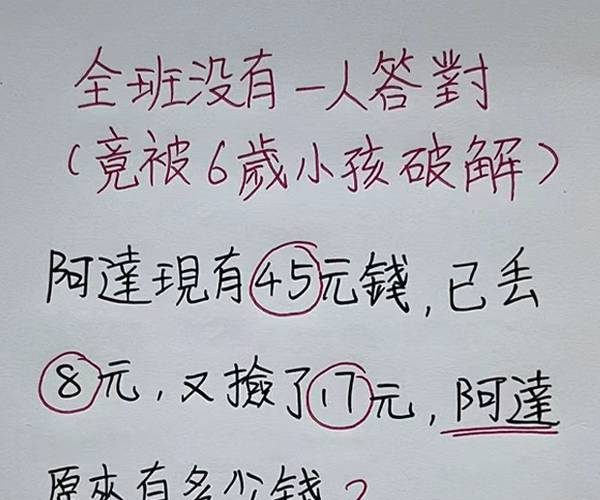 全班没有一人答對
(竟被6歲小孩破解)
阿達現有45元錢,已丢
8元,又撿了17元,阿達
原來有多少錢?